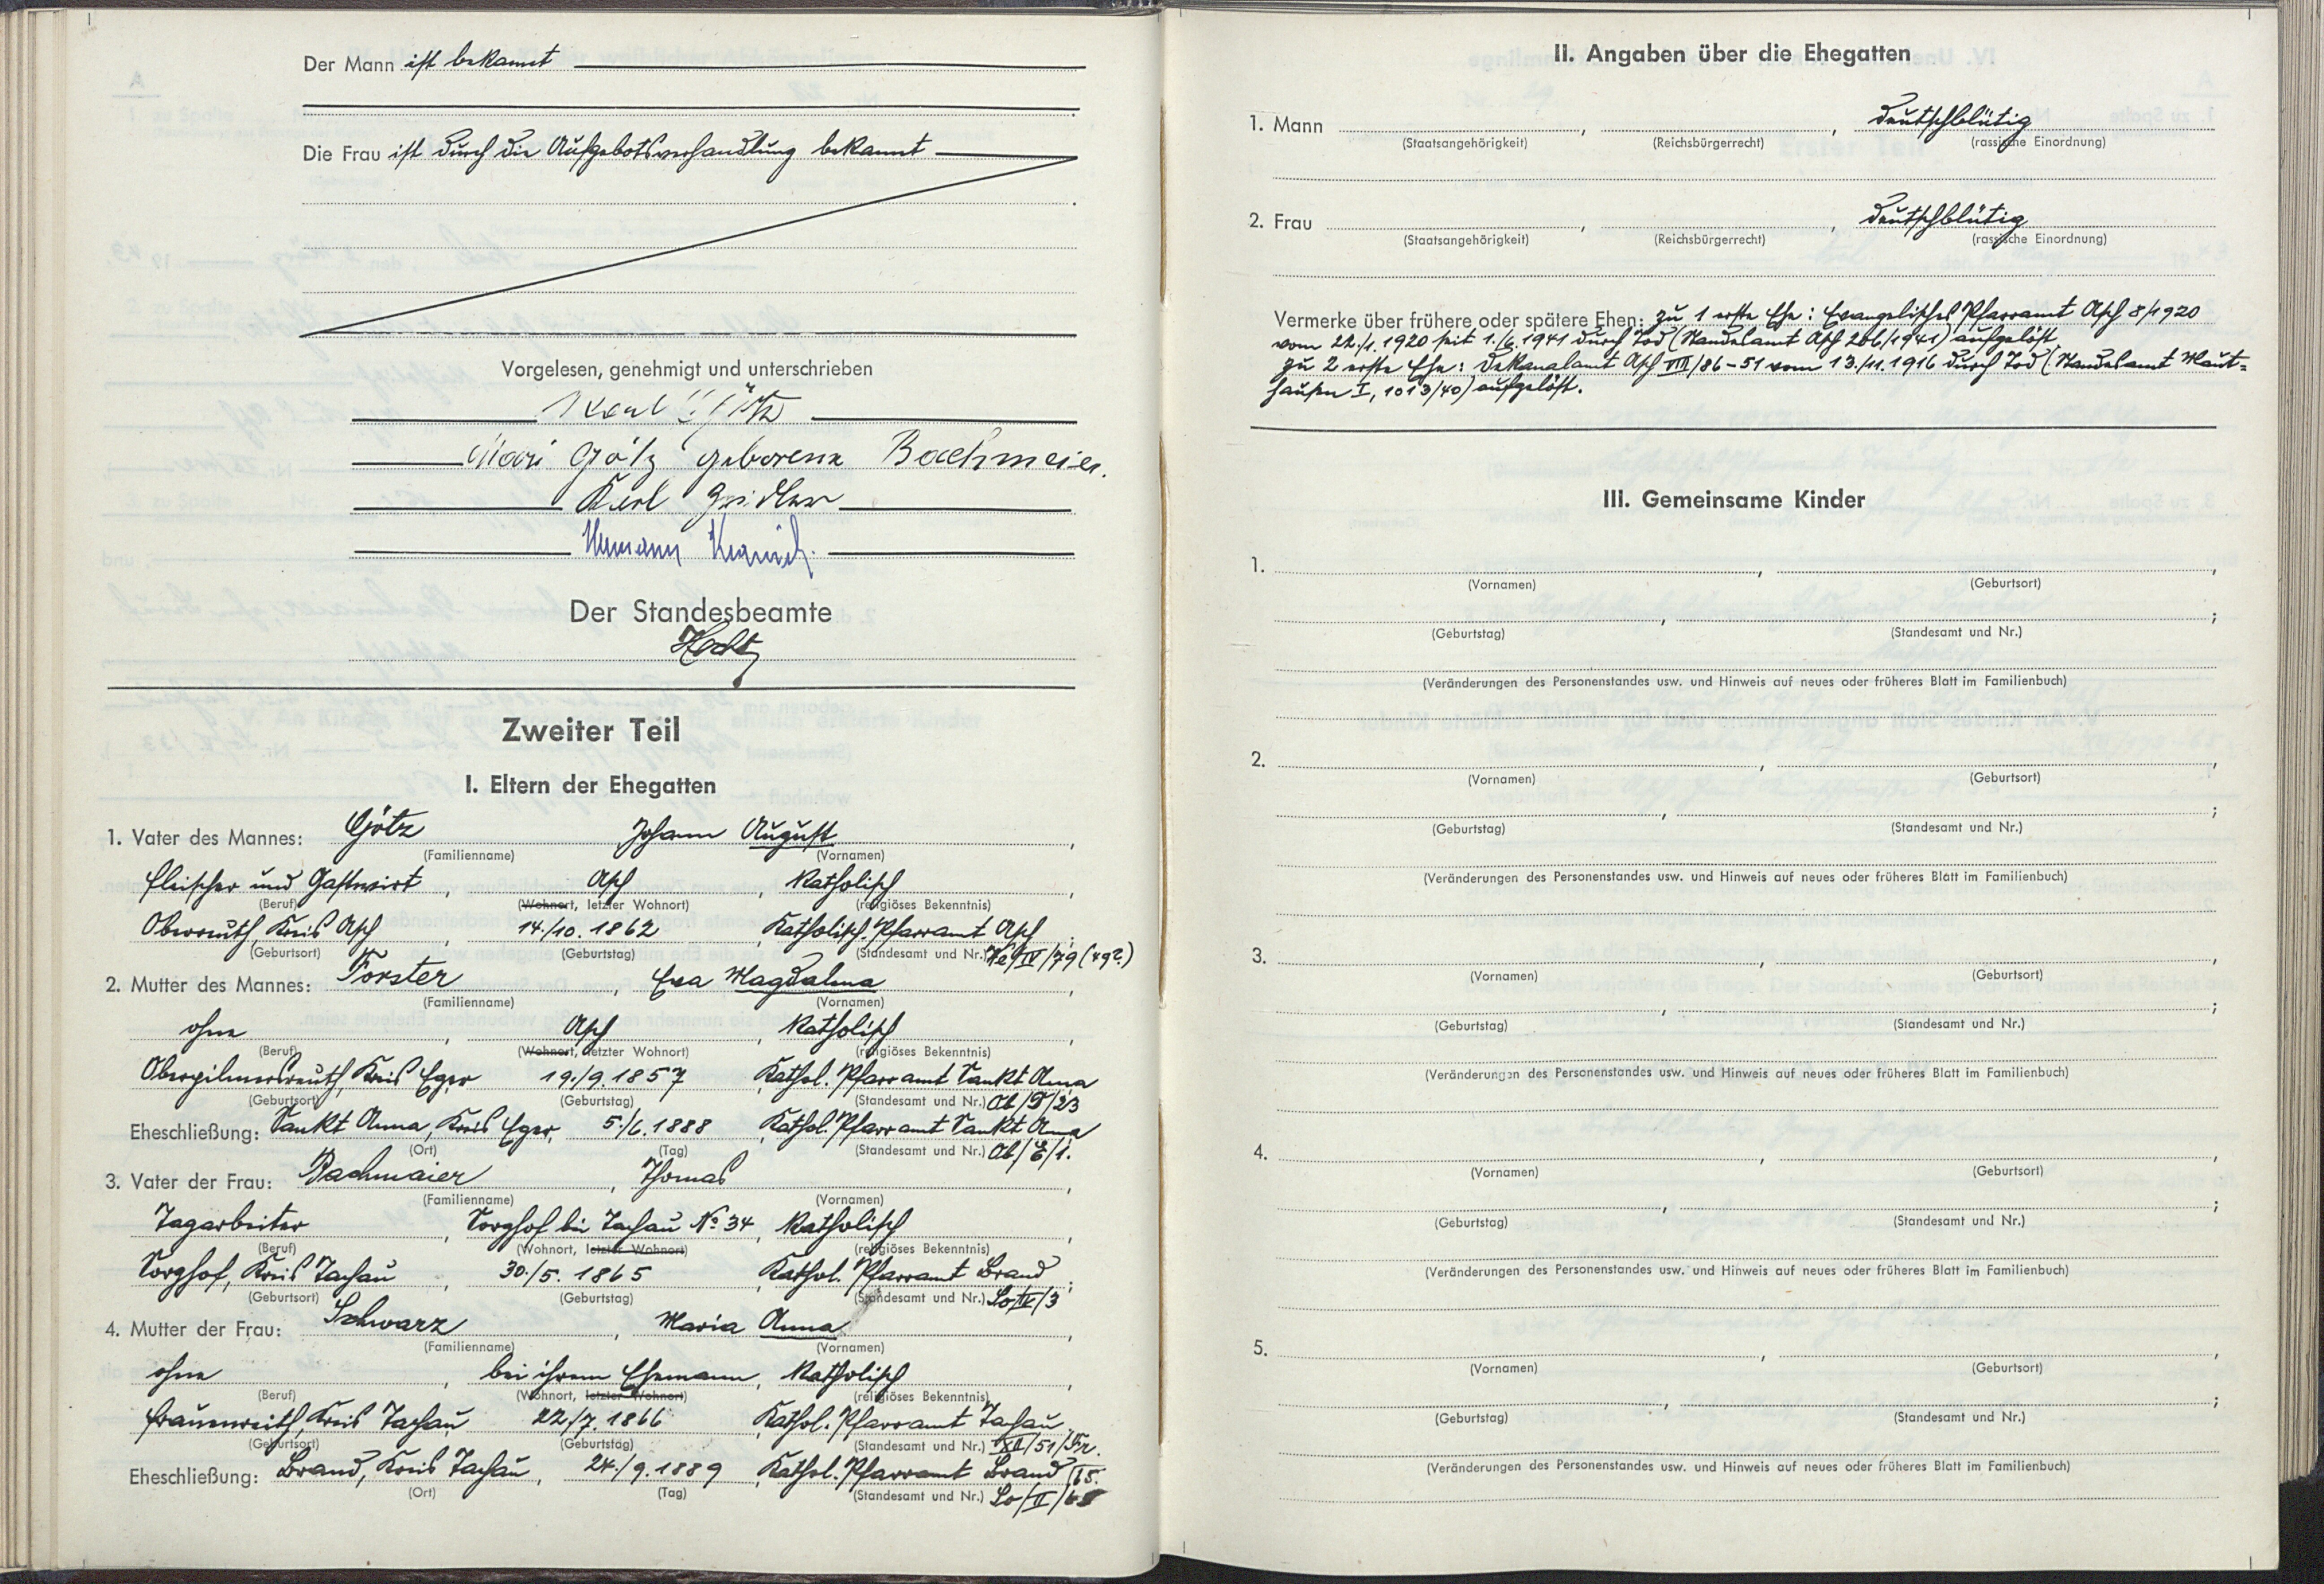 Der Mann ist bekannt
Die Frau ist durch die Aufgebotsverhandlung bekannt
Vorgelesen, genehmigt und unterschrieben
Karl Götz
Mari Götz geborene Bachmeier.
Karl
Hermann
Der Standesbeamte
Zweiter Teil
I. Eltern der Ehegatten
1. Vater des Mannes: Götz Johann August,
(Familienname) (Vornamen)
Fleischer und Gastwirt, Asch, katholisch,
(Beruf) (Wohnort, letzter Wohnort) (religiöses Bekenntnis)
Oberreuth, Kreis Asch, 14./10. 1862, Katholisch. Pfarramt Asch;
(Geburtsort) (Geburtstag) (Standesamt und Nr.) Ne/IV/79 (49?)
2. Mutter des Mannes: Forster, Eva Magdalena,
(Familienname) (Vornamen)
ohne, Asch, katholisch,
(Beruf) (Wohnort, letzter Wohnort) (religiöses Bekenntnis)
Oberpilmersreuth, Kreis Eger 19./9. 1857 Kathol. Pfarramt Sankt Anna
(Geburtsort) (Geburtstag) (Standesamt und Nr.) Ob/D/23
Eheschließung: Sankt Anna, Kreis Eger, 5./6. 1888, Kathol. Pfarramt Sankt Anna
(Ort) (Tag) (Standesamt und Nr.) Ob/E/1.
3. Vater der Frau: Bachmaier, Thomas,
(Familienname) (Vornamen)
Tagarbeiter, Sorghof bei Tachau No 34, katholisch,
(Beruf) (Wohnort, letzter Wohnort) (religiöses Bekenntnis)
Sorghof, Kreis Tachau, 30./5. 1865, Kathol. Pfarramt Brand;
(Geburtsort) (Geburtstag) (Standesamt und Nr.) So/IV/3
4. Mutter der Frau: Schwarz, Maria Anna,
(Familienname) (Vornamen)
ohne, bei ihrem Ehemann, katholisch,
(Beruf) (Wohnort, letzter Wohnort) (religiöses Bekenntnis)
Frauenreith, Kreis Tachau 22./7. 1866 Kathol. Pfarramt Tachau
(Geburtsort) (Geburtstag) (Standesamt und Nr.) /51/Fr.
Eheschließung: Brand, Kreis Tachau, 24./9. 1889, Kathol. Pfarramt Brand
(Ort) (Tag) (Standesamt und Nr.) So/II/
II. Angaben über die Ehegatten
1. Mann , , deutschblütig
(Staatsangehörigkeit) (Reichsbürgerrecht) (rassische Einordnung)
2. Frau , , deutschblütig
(Staatsangehörigkeit) (Reichsbürgerrecht) (rassische Einordnung)
Vermerke über frühere oder spätere Ehen: zu 1 erste Ehe: Evangelisches Pfarramt Asch 8/1920
vom 22./1. 1920 seit 1./6. 1941 durch Tod (Standesamt Asch 206/1941) aufgelöst.
zu 2 erste Ehe: Dekanalamt Asch VIII/86-51 vom 13./11. 1916 durch Tod (Standesamt Maut=
hausen I, 1013/40) aufgelöst.
III. Gemeinsame Kinder
1. , ,
(Vornamen) (Geburtsort)
, ;
(Geburtstag) (Standesamt und Nr.)
(Veränderungen des Personenstandes usw. und Hinweis auf neues oder früheres Blatt im Familienbuch)
2. , ,
(Vornamen) (Geburtsort)
, ;
(Geburtstag) (Standesamt und Nr.)
(Veränderungen des Personenstandes usw. und Hinweis auf neues oder früheres Blatt im Familienbuch)
3. , ,
(Vornamen) (Geburtsort)
, ;
(Geburtstag) (Standesamt und Nr.)
(Veränderungen des Personenstandes usw. und Hinweis auf neues oder früheres Blatt im Familienbuch)
4. , ,
(Vornamen) (Geburtsort)
, ;
(Geburtstag) (Standesamt und Nr.)
(Veränderungen des Personenstandes usw. und Hinweis auf neues oder früheres Blatt im Familienbuch)
5. , ,
(Vornamen) (Geburtsort)
, ;
(Geburtstag) (Standesamt und Nr.)
(Veränderungen des Personenstandes usw. und Hinweis auf neues oder früheres Blatt im Familienbuch)